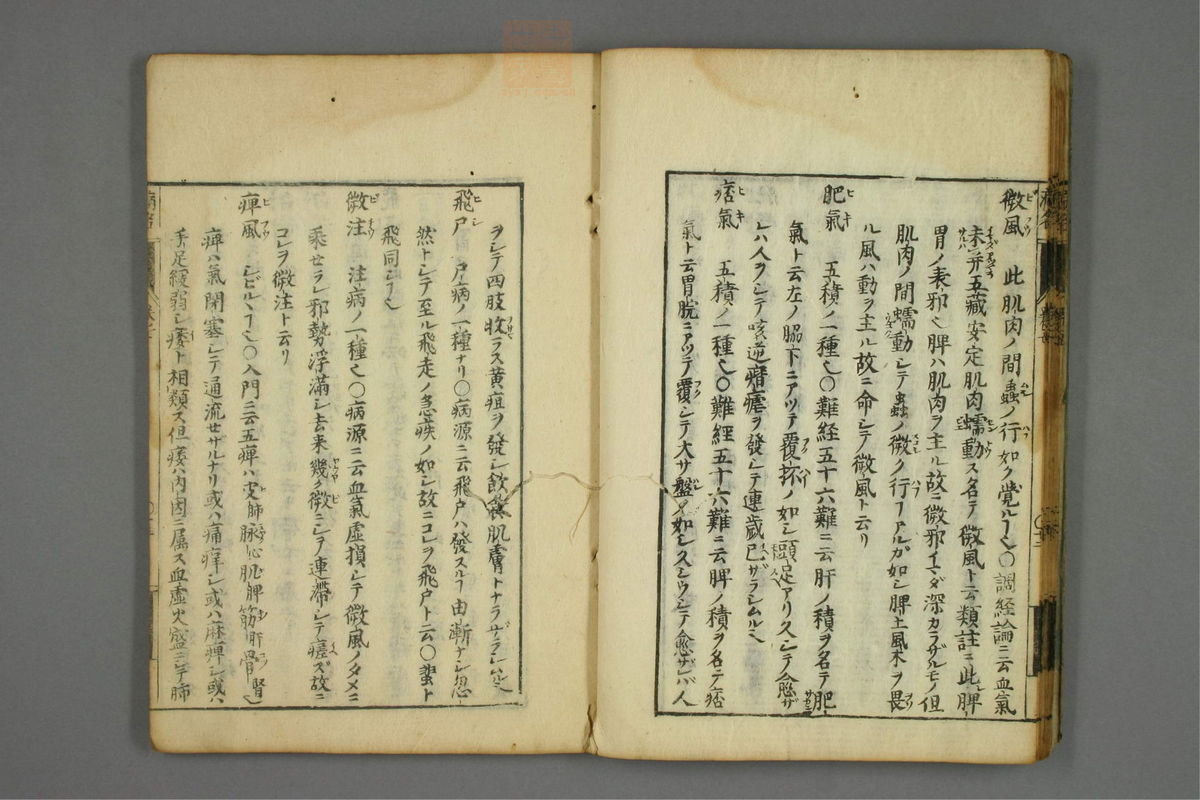 微風 此肌肉ノ間蟲ノ行如ク覚ルヿ也〇調経論ニ云血氣
未并五藏安定肌肉蠕動ス名テ微風ト云類註ニ此脾
胃ノ表邪也脾ハ肌肉ヲ主ル故ニ微邪イマダ深カラザルモノ但
肌肉ノ間蠕動シテ蟲ノ微ク行ヿアルガ如シ脾土風木ヲ畏
ル風ハ動ヲ主ル故ニ命シテ微風ト云リ
肥氣 五積ノ一種也〇難経五十六難ニ云肝ノ積ヲ名テ肥
氣ト云左ノ脇下ニアツテ覆杯ノ如シ頭足アリ久シテ愈ザ
レハ人ヲシテ咳逆瘧ヲ發シテ連歳已ザラシムル也
痞氣 五積ノ一種也〇難経五十六難ニ云脾ノ積ヲ名テ痞
氣ト云胃脘ニアツテ覆シテ大サ盤ノ如シ久シウシテ愈ザレバ人
ヲシテ四肢收ラス黄疸ヲ發シ飲食肌膚トナラザラシム也
飛尸 尸病ノ一種ナリ〇病源ニ云飛尸ハ發スルヿ由漸ナシ忽
然トシテ至ル飛走ノ急疾ノ如シ故ニコレヲ飛尸ト云〇蜚ト
飛同シ也
微注 注病ノ一種也〇病源ニ云血氣虚損シテ微風ノタメニ
乘セラレ邪勢浮滿シ去来幾ク微ニシテ連滯シテ瘥ズ故ニ
コレヲ微注ト云リ
痺風 シビルヽヿ也〇入門ニ云五痺ハ皮肺脉心肌脾筋肝骨腎也
痺ハ氣閉塞シテ通流せサルナリ或ハ痛痒シ或ハ麻痺シ或ハ
手足緩弱シ痿ト相類ス但痿ハ内因ニ属ス血虚火盛ニシテ肺